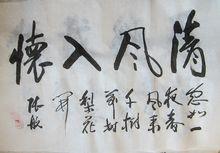 清风入怀
忽如一
夜春
风来
千树
万树
梨花
开
陈敏